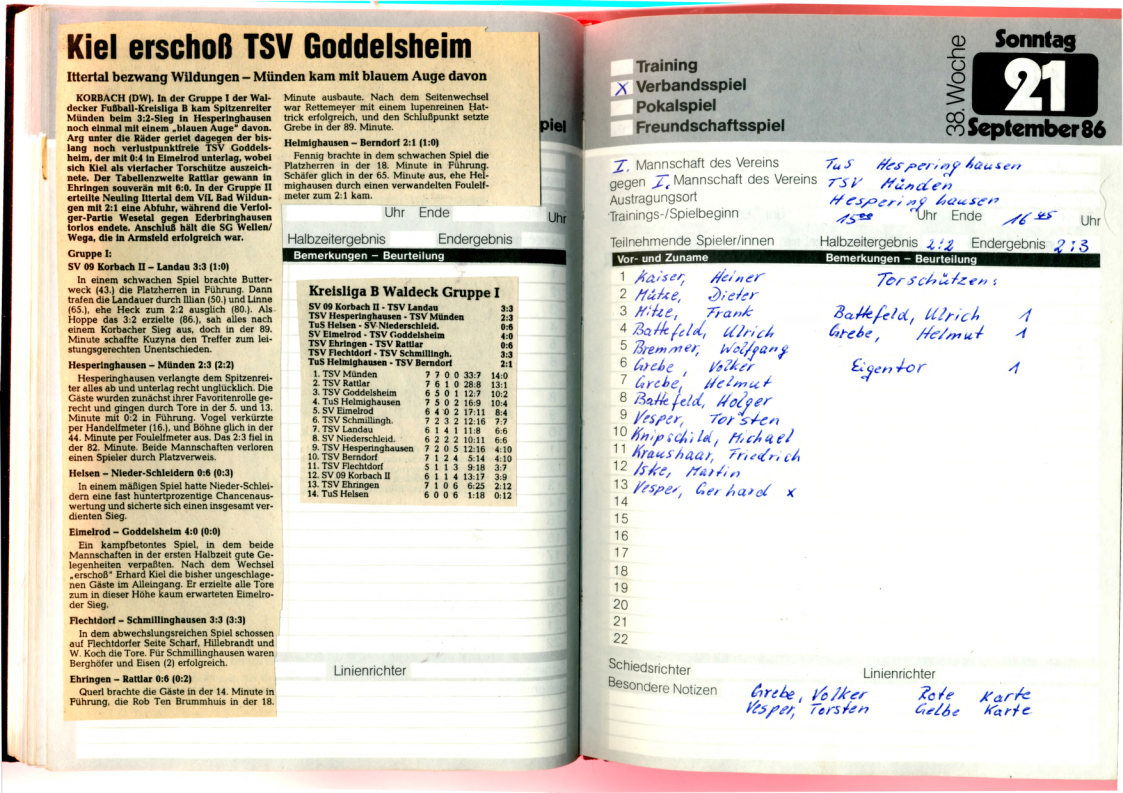 Kiel erschoß TSV Goddelsheim
Ittertal bezwang Wildungen – Münden kam mit blauem Auge davon
KORBACH (DW). In der Gruppe I der Wal-
decker Fußball-Kreisliga B kam Spitzenreiter
Münden beim 3:2-Sieg in Hesperinghausen
noch einmal mit einem „blauen Auge" davon.
Arg unter die Räder geriet dagegen der bis-
lang noch verlustpunktfreie TSV Goddels-
heim, der mit 0:4 in Eimelrod unterlag, wobei
sich Kiel als vierfacher Torschütze auszeich-
nete. Der Tabellenzweite Rattlar gewann in
Ehringen souverän mit 6:0. In der Gruppe II
erteilte Neuling Ittertal dem VfL Bad Wildun-
gen mit 2:1 eine Abfuhr, während die Verfol-
ger-Partie Wesetal gegen Ederbringhausen
torlos endete. Anschluß hält die SG Wellen/
Wega, die in Armsfeld erfolgreich war.
Gruppe I:
SV 09 Korbach II – Landau 3:3 (1:0)
In einem schwachen Spiel brachte Butter-
weck (43.) die Platzherren in Führung. Dann
trafen die Landauer durch Illian (50.) und Linne
(65.), ehe Heck zum 2:2 ausglich (80.). Als
Hoppe das 3:2 erzielte (86.), sah alles nach
einem Korbacher Sieg aus, doch in der 89.
Minute schaffte Kuzyna den Treffer zum lei-
stungsgerechten Unentschieden.
Hesperinghausen – Münden 2:3 (2:2)
Hesperinghausen verlangte dem Spitzenrei-
ter alles ab und unterlag recht unglücklich. Die
Gäste wurden zunächst ihrer Favoritenrolle ge-
recht und gingen durch Tore in der 5. und 13.
Minute mit 0:2 in Führung. Vogel verkürzte
per Handelfmeter (16.), und Böhne glich in der
44. Minute per Foulelfmeter aus. Das 2:3 fiel in
der 82. Minute. Beide Mannschaften verloren
einen Spieler durch Platzverweis.
Helsen – Nieder-Schleidern 0:6 (0:3)
In einem mäßigen Spiel hatte Nieder-Schlei-
dern eine fast huntertprozentige Chancenaus-
wertung und sicherte sich einen insgesamt ver-
dienten Sieg.
Eimelrod – Goddelsheim 4:0 (0:0)
Ein kampfbetontes Spiel, in dem beide
Mannschaften in der ersten Halbzeit gute Ge-
legenheiten verpaßten. Nach dem Wechsel
„erschoß" Erhard Kiel die bisher ungeschlage-
nen Gäste im Alleingang. Er erzielte alle Tore
zum in dieser Höhe kaum erwarteten Eimelro-
der Sieg.
Flechtdorf – Schmillinghausen 3:3 (3:3)
In dem abwechslungsreichen Spiel schossen
auf Flechtdorfer Seite Scharf, Hillebrandt und
W. Koch die Tore. Für Schmillinghausen waren
Berghöfer und Eisen (2) erfolgreich.
Ehringen – Rattlar 0:6 (0:2)
Querl brachte die Gäste in der 14. Minute in
Führung, die Rob Ten Brummhuis in der 18.
Minute ausbaute. Nach dem Seitenwechsel
war Rettemeyer mit einem lupenreinen Hat-
trick erfolgreich, und den Schlußpunkt setzte
Grebe in der 89. Minute.
Helmighausen – Berndorf 2:1 (1:0)
Fennig brachte in dem schwachen Spiel die
Platzherren in der 18. Minute in Führung.
Schäfer glich in der 65. Minute aus, ehe Hel-
mighausen durch einen verwandelten Foulelf-
meter zum 2:1 kam.
piel
Uhr Ende Uhr
Halbzeitergebnis Endergebnis
Bemerkungen – Beurteilung
Kreisliga B Waldeck Gruppe I
SV 09 Korbach II - TSV Landau 3:3
TSV Hesperinghausen - TSV Münden 2:3
TuS Helsen - SV Niederschleid. 0:6
SV Eimelrod - TSV Goddelsheim 4:0
TSV Ehringen - TSV Rattlar 0:6
TSV Flechtdorf - TSV Schmillingh. 3:3
TuS Helmighausen - TSV Berndorf 2:1
1. TSV Münden 7 7 0 0 33:7 14:0
2. TSV Rattlar 7 6 1 0 28:8 13:1
3. TSV Goddelsheim 6 5 0 1 12:7 10:2
4. TuS Helmighausen 7 5 0 2 16:9 10:4
5. SV Eimelrod 6 4 0 2 17:11 8:4
6. TSV Schmillingh. 7 2 3 2 12:16 7:7
7. TSV Landau 6 1 4 1 11:8 6:6
8. SV Niederschleid. 6 2 2 2 10:11 6:6
9. TSV Hesperinghausen 7 2 0 5 12:16 4:10
10. TSV Berndorf 7 1 2 4 5:14 4:10
11. TSV Flechtdorf 5 1 1 3 9:18 3:7
12. SV 09 Korbach II 6 1 1 4 13:17 3:9
13. TSV Ehringen 7 1 0 6 6:25 2:12
14. TuS Helsen 6 0 0 6 1:18 0:12
Linienrichter
Training
X Verbandsspiel
Pokalspiel
Freundschaftsspiel
38. Woche
Sonntag
21
September 86
I. Mannschaft des Vereins TuS Hesperinghausen
gegen I. Mannschaft des Vereins TSV Münden
Austragungsort Hesperinghausen
Trainings-/Spielbeginn 15 00 Uhr Ende 16 45 Uhr
Teilnehmende Spieler/innen Halbzeitergebnis 2:2 Endergebnis 2:3
Vor- und Zuname Bemerkungen – Beurteilung
1 Kaiser, Heiner Torschützen:
2 Mütze, Dieter
3 Mitze, Frank Battefeld, Ulrich 1
4 Battefeld, Ulrich Grebe, Helmut 1
5 Bremmer, Wolfgang
6 Grebe, Volker Eigentor 1
7 Grebe, Helmut
8 Battefeld, Holger
9 Vesper, Torsten
10 Knipschild, Michael
11 Kraushaar, Friedrich
12 Iske, Martin
13 Vesper, Gerhard x
14
15
16
17
18
19
20
21
22
Schiedsrichter Linienrichter
Besondere Notizen Grebe, Volker Rote Karte
Vesper, Torsten Gelbe Karte